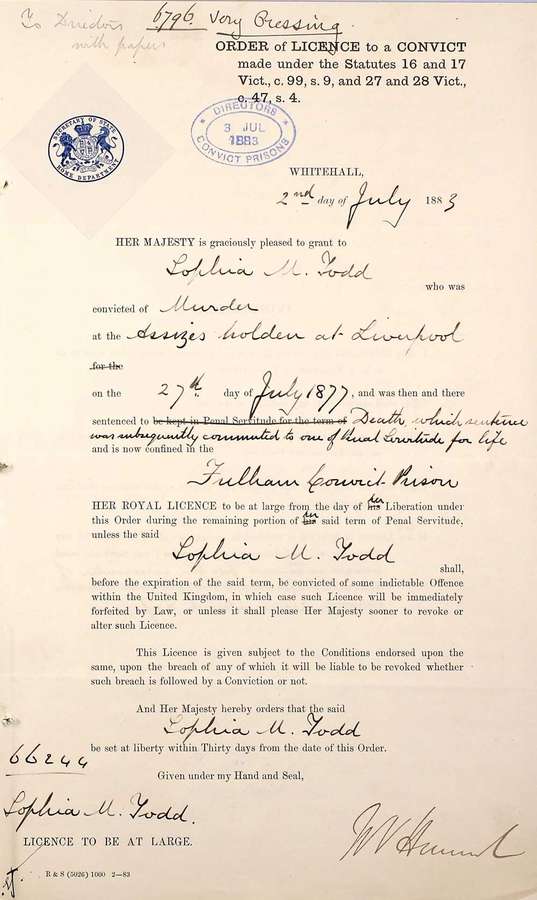 To Directors
with papers
6796. Very Pressing.
ORDER of LICENCE to a CONVICT
made under the Statutes 16 and 17
Vict., c. 99, s. 9, and 27 and 28 Vict.,
c. 47, s. 4.
SECRETARY OF STATE
HOME DEPARTMENT
DIRECTORS
3 JUL
1883
CONVICT PRISONS
WHITEHALL,
2nd day of July 1883
HER MAJESTY is graciously pleased to grant to
Sophia M. Todd
who was
convicted of Murder
at the Assizes holden at Liverpool
for the
on the 27th day of July 1877, and was then and there
sentenced to be kept in Penal Servitude for the term of Death, which sentence
was subsequently commuted to one of Penal Servitude for life
and is now confined in the
Fulham Convict Prison
HER ROYAL LICENCE to be at large from the day of his her Liberation under
this Order during the remaining portion of his her said term of Penal Servitude,
unless the said
Sophia M. Todd
shall,
before the expiration of the said term, be convicted of some indictable Offence
within the United Kingdom, in which case such Licence will be immediately
forfeited by Law, or unless it shall please Her Majesty sooner to revoke or
alter such Licence.
This Licence is given subject to the Conditions endorsed upon the
same, upon the breach of any of which it will be liable to be revoked whether
such breach is followed by a Conviction or not.
And Her Majesty hereby orders that the said
Sophia M. Todd
be set at liberty within Thirty days from the date of this Order.
66244
Given under my Hand and Seal,
Sophia M. Todd.
LICENCE TO BE AT LARGE.
R & S (5026) 1000 2—83